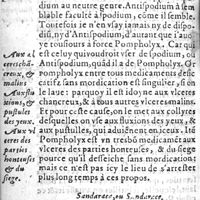 dium au neutre genre. Antispodium à sem
blable faculté à spodium, come il semble.
Toutefois ie n'en vsay iamais ny de dispo-
diū, ny d'Antispodiū, d'autant que i'auoye
tousiours à force Pompholyx. Car
Aux vl- celuy qui voudroit vser de spodium, ou
Antispodiū, quād il a de Pompholyx. Or
pompholyx entre tous medicamens desic
catifs sans mordication est singulier, si on
le laue: parquoy il est idoyne aux vlceres
chancreux, & à tous autres vlceres malins.
Et pour ce on le mixtione aux collyres
desquelles on vse aux fluxions des yeux, &
aux pustulles, qui aduiēnent en iceux. Itē
Pompholyx est vn tresbō medicamēt aux
vlceres des parties honteuses, & du siege
pource qu'il desseiche sans mordication
mais ce n'est pas icy le lieu de s'arrester
plus long temps à ces propos.
ceres
creux, &
malins
Aux flu
xions, &
pustules
des yeux.
Aux vl
ceres des
parties
honteuses
& du
siege.
Sandarax, ou Sandarace.